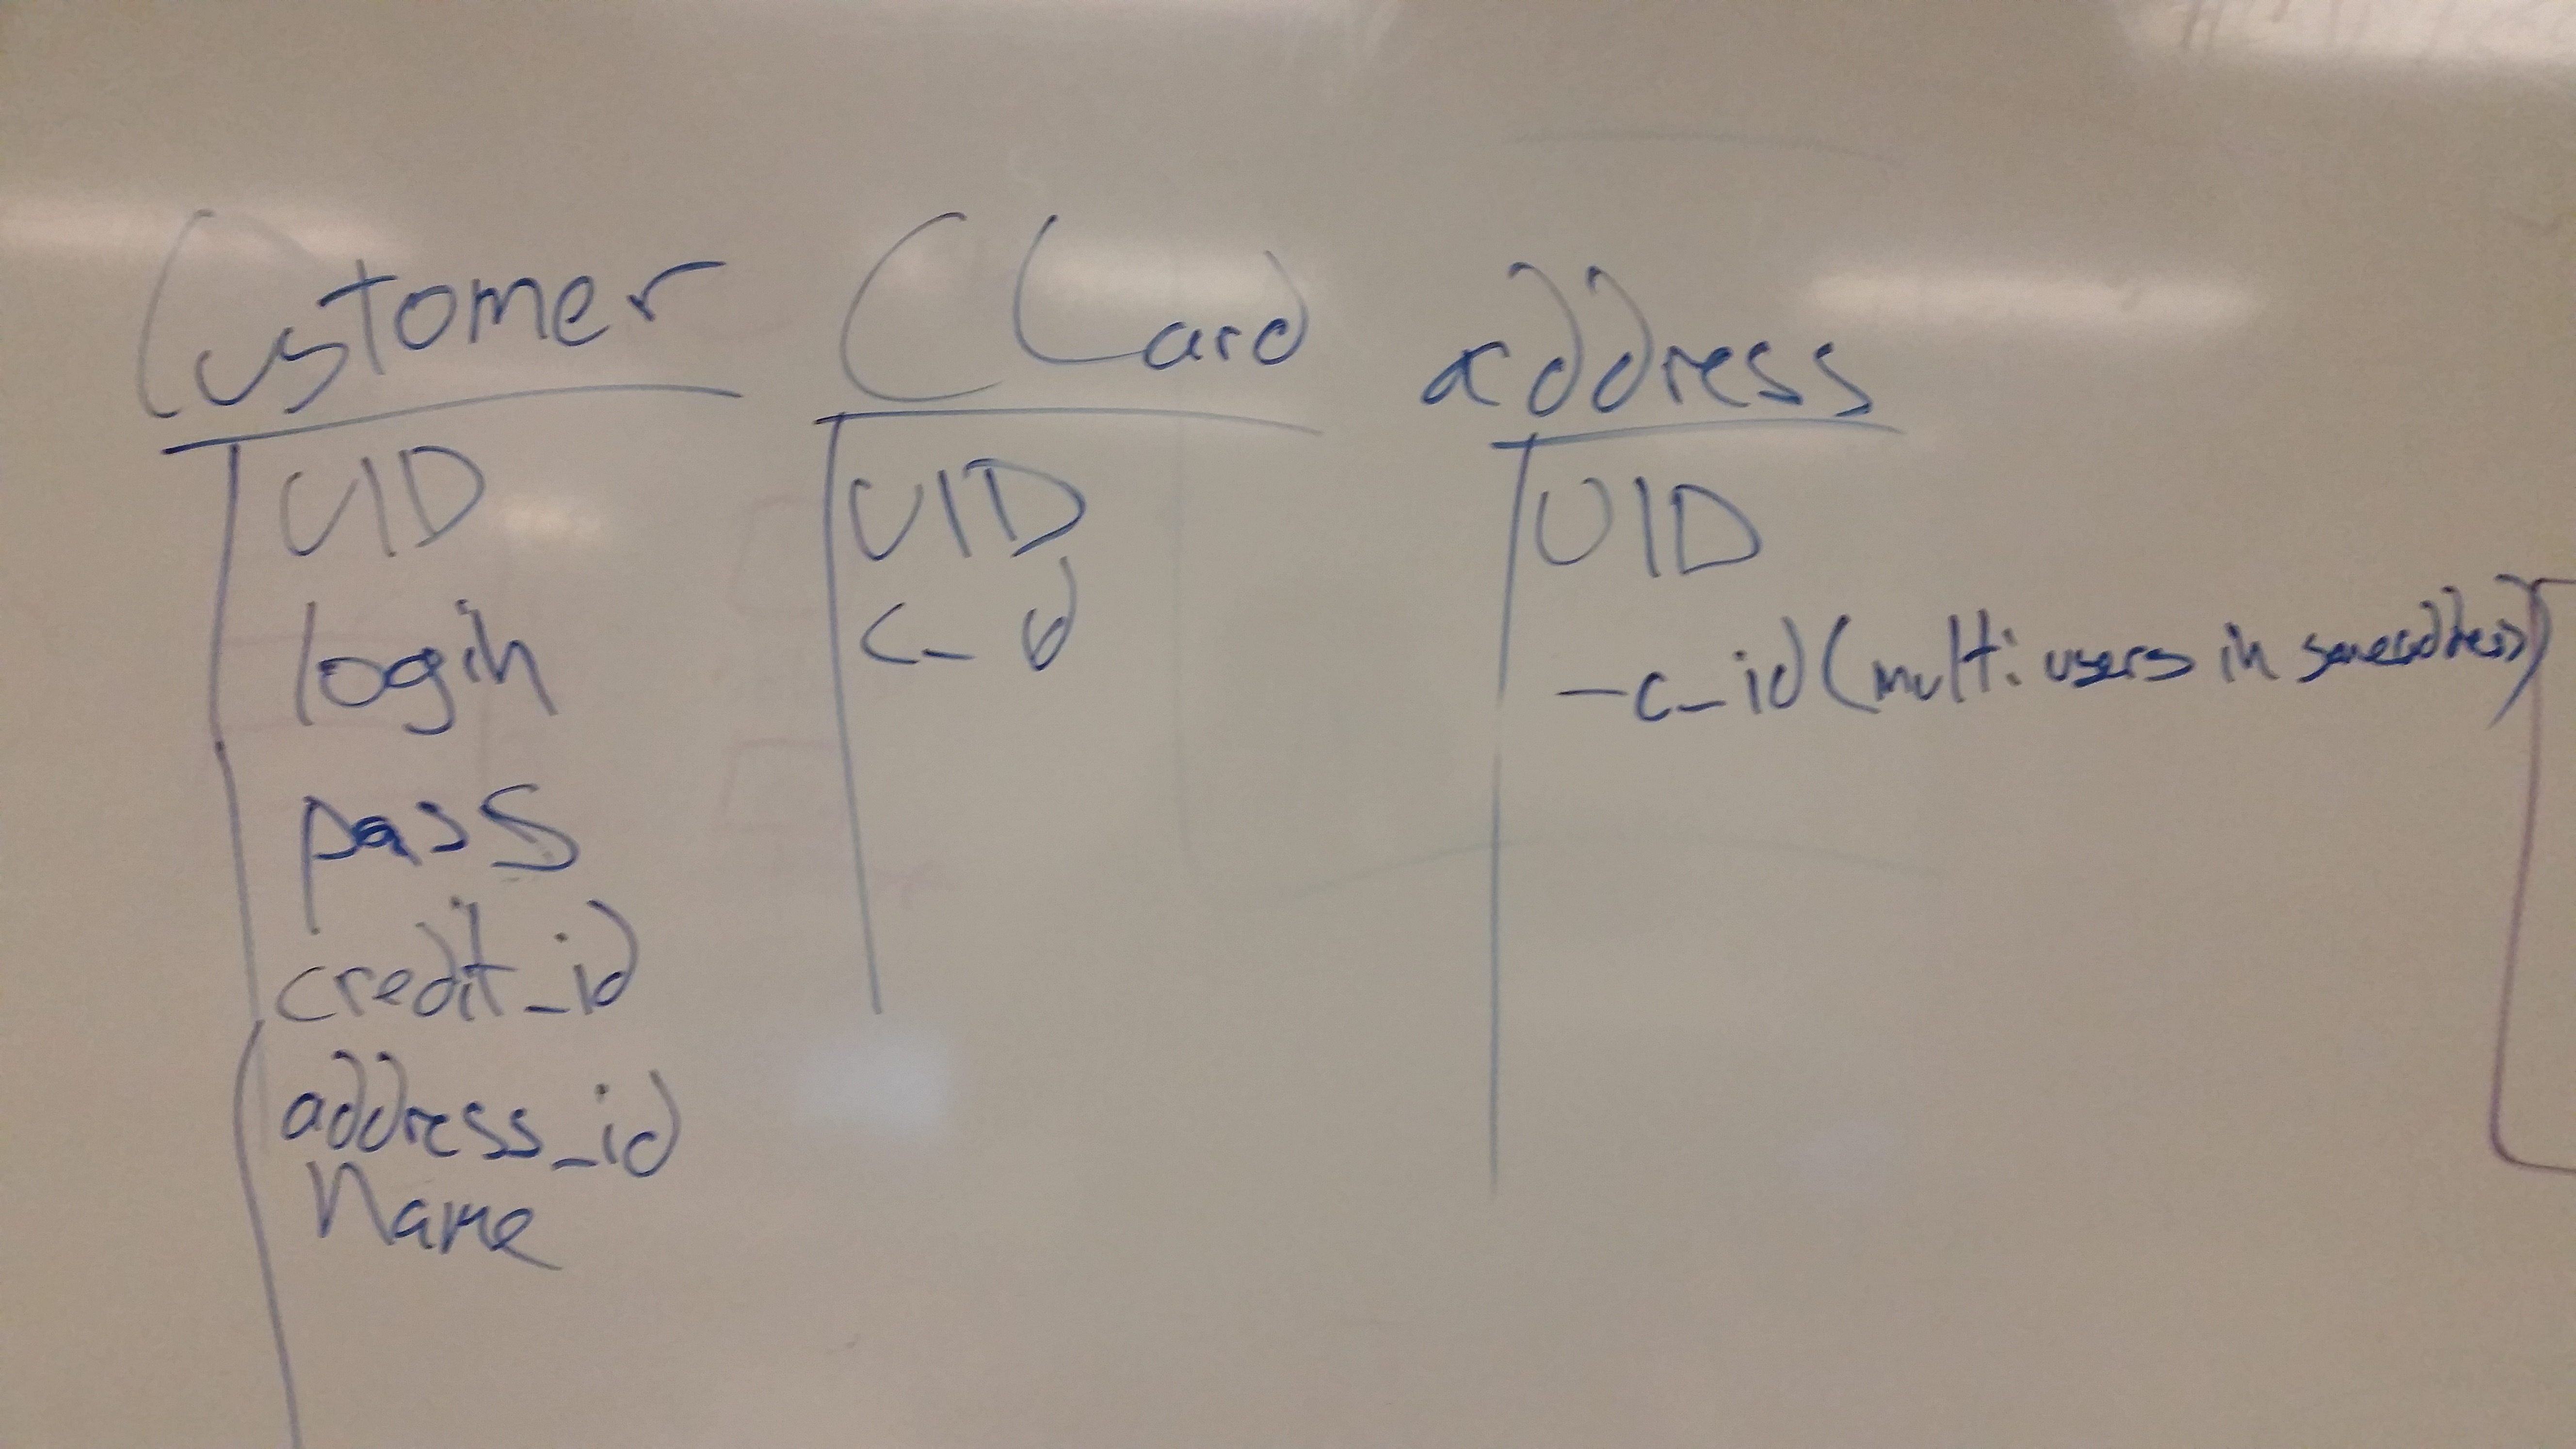 Customer
UID
login
pass
credit_id
address_id
Name
CCard
UID
c_id
address
UID
-c_id (multi users in same address)